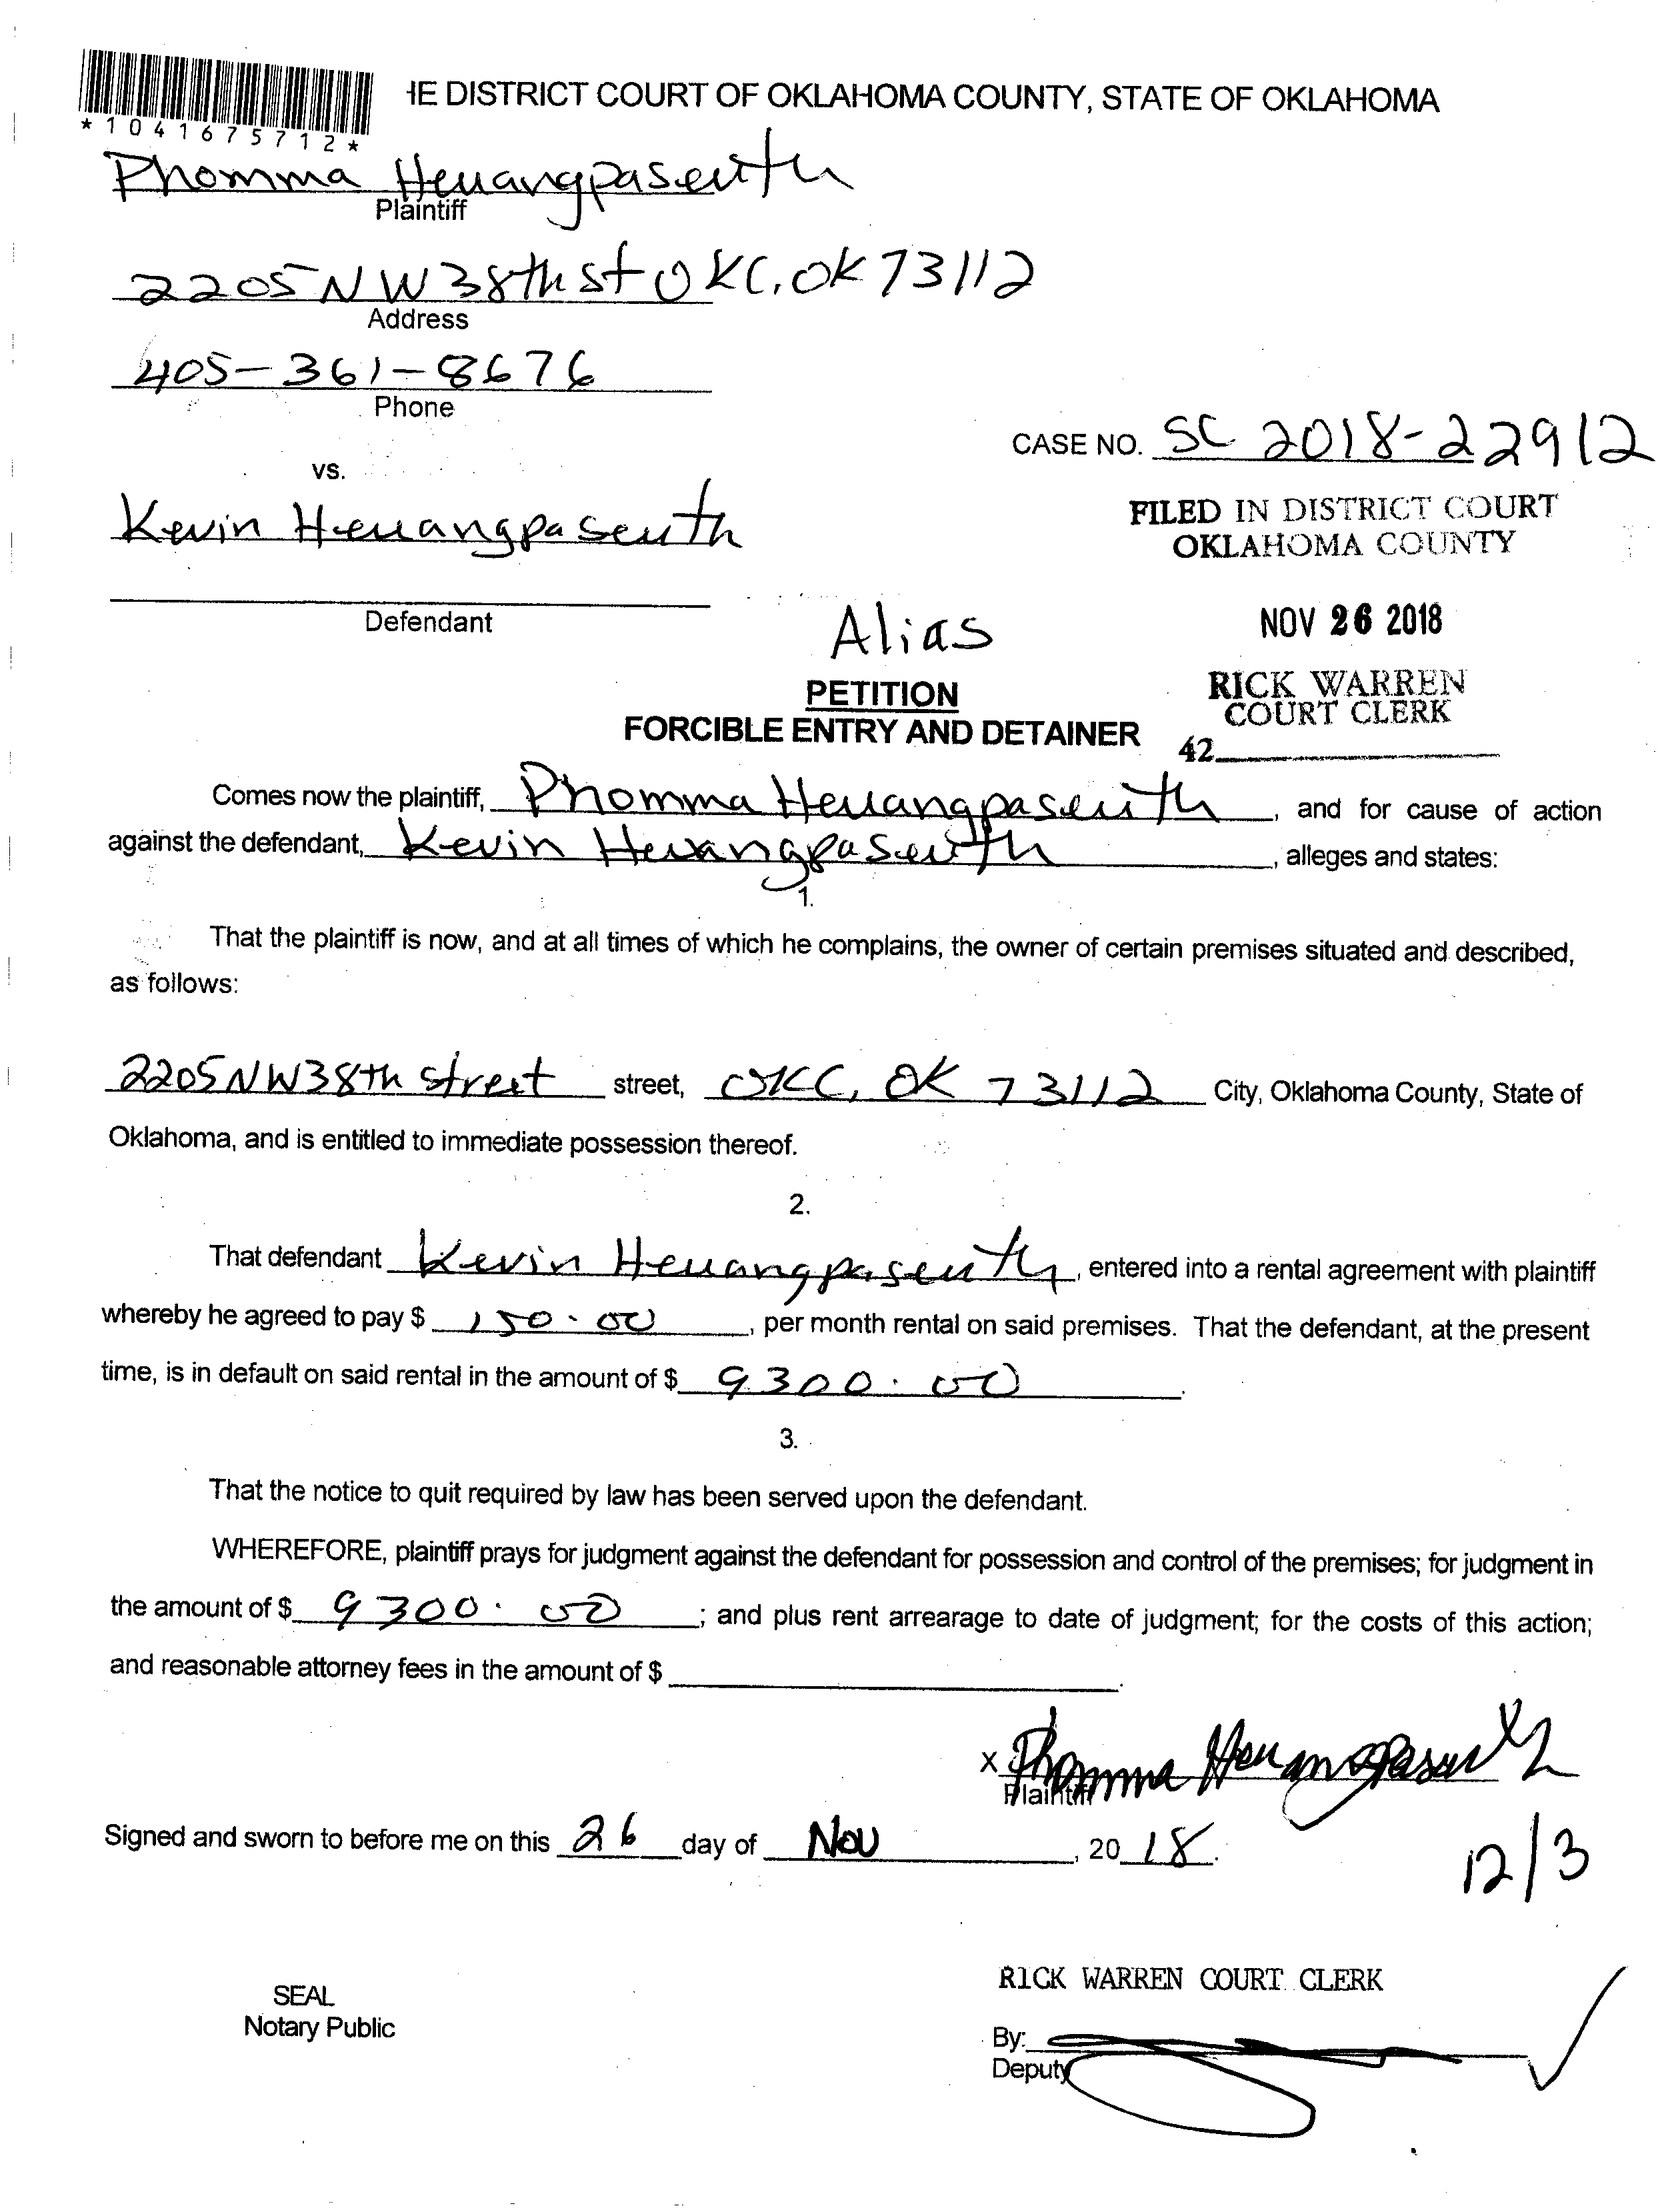 *1041675712*
HE DISTRICT COURT OF OKLAHOMA COUNTY, STATE OF OKLAHOMA
Phomma Heuangpaseuth
Plaintiff
2205 NW 38th St OKC, OK 73112
Address
405-361-8676
Phone
CASE NO. SC 2018-22912
vs.
Kevin Heuangpaseuth
FILED IN DISTRICT COURT
OKLAHOMA COUNTY
Defendant
Alias
NOV 26 2018
PETITION
FORCIBLE ENTRY AND DETAINER
RICK WARREN
COURT CLERK
42
Comes now the plaintiff, Phomma Heuangpaseuth, and for cause of action
against the defendant, Kevin Heuangpaseuth, alleges and states:
1.
That the plaintiff is now, and at all times of which he complains, the owner of certain premises situated and described,
as follows:
2205 NW 38th Street street, OKC, OK 73112 City, Oklahoma County, State of
Oklahoma, and is entitled to immediate possession thereof.
2.
That defendant Kevin Heuangpaseuth, entered into a rental agreement with plaintiff
whereby he agreed to pay $ 150.00, per month rental on said premises. That the defendant, at the present
time, is in default on said rental in the amount of $ 9300.00.
3.
That the notice to quit required by law has been served upon the defendant.
WHEREFORE, plaintiff prays for judgment against the defendant for possession and control of the premises; for judgment in
the amount of $ 9300.00; and plus rent arrearage to date of judgment; for the costs of this action;
and reasonable attorney fees in the amount of $
X Phomma Heuangpaseuth
Plaintiff
Signed and sworn to before me on this 26 day of Nov, 2018.
12/3
RICK WARREN COURT CLERK
SEAL
Notary Public
By:
Deputy